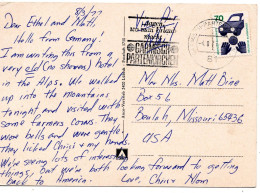 8/5/77
Dear Ethel and Matt,
Hello from Germany!
I am writing this from a
very old (no shower) hotel
in the Alps. We walked
out in the mountains
tonight and visited with
some farmers cows. They
wore bells and were gentle.
They licked Chris' + my hands.
We've seen lots of interesting
things, but we're both looking forward to getting
back to America. Love, Chris + Mom
GARMISCH
PARTENKIRCHEN
70
Mr + Mrs. Matt Bine
Box 56
Beulah, Missouri 65436
USA